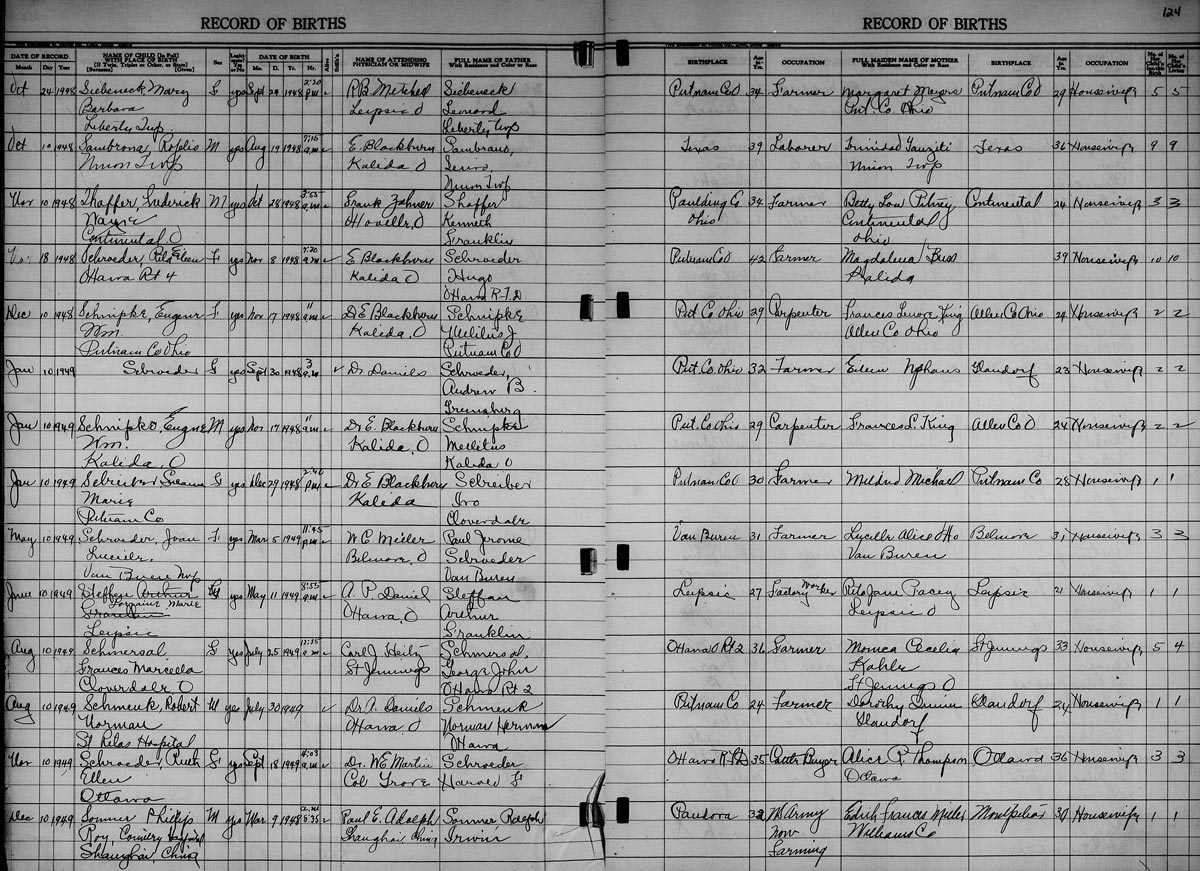 124
RECORD OF BIRTHS
RECORD OF BIRTHS
DATE OF RECORD
Month Day Year
NAME OF CHILD (In Full)
WITH PLACE OF BIRTH
(If Twin, Triplet or Other, so State)
(Surname) (Given)
Sex
Legitimate?
Yes or No
DATE OF BIRTH
Mo. D. Yr. Hr.
Alive
NAME OF ATTENDING
PHYSICIAN OR MIDWIFE
FULL NAME OF FATHER
With Residence and Color or Race
BIRTHPLACE
Age in Yrs.
OCCUPATION
FULL MAIDEN NAME OF MOTHER
With Residence and Color or Race
BIRTHPLACE
Age in Yrs.
OCCUPATION
Oct 24 1948 Siebeneck, Mary F yes Sept 29 1948 2:20 P.M. R.B. Mitchell Siebeneck Putnam Co O 34 Farmer Margaret Meyers Putnam Co O 29 Housewife 5 5
Barbara Leipsic O Leonard Put. Co. Ohio
Liberty Twp. Liberty Twp
Oct 10 1948 Sambrona, M yes Aug 19 1948 7:15 a.m. E. Blackburn Texas 39 Laborer Trinidad Texas 36 Housewife 9 9
Union Twp Kalida O Union Twp
Union Twp
Nov 10 1948 Frederick M yes Oct 28 1948 3:55 a.m. Frank Shaffer Paulding Co 34 Farmer Betty Lou Continental 24 Housewife 3 3
Wayne Kenneth Ohio Continental
Continental O Franklin Ohio
18 1948 Schroeder, Rita Eileen F yes Nov 8 1948 7:20 a.m. E Blackburn Schroeder Putnam Co O 42 Farmer Magdalena 39 Housewife 10 10
Ottawa Rt 4 Kalida O Hugo Kalida
Ottawa R.F.D
Dec 10 1948 Schnipke, Eugene F yes Nov 17 1948 11 a.m. Dr E Blackburn Schnipke Put Co Ohio 29 Carpenter Frances Lenore King Allen Co Ohio 24 Housewife 2 2
Wm. Kalida, O Allen Co Ohio
Putnam Co Ohio Putnam Co O
Jan 10 1949 Schroeder F yes Sept 30 1948 3 a.m. Dr Daniels Schroeder, Put. Co. Ohio 32 Farmer Eileen Glandorf 23 Housewife 2 2
Andrew B.
Jan 10 1949 Schnipke, Eugene M yes Nov 17 1948 11 a.m. Dr E. Blackburn Schnipke Put. Co Ohio 29 Carpenter Frances L King Allen Co O 24 Housewife 2 2
Wm. Kalida, O Mellitus
Kalida, O Kalida O
Jan 10 1949 Schreiber, F yes Dec 29 1948 2:46 P.M. Dr E Blackburn Schreiber Putnam Co O 30 Farmer Mildred Michael Putnam Co 28 Housewife 1 1
Marie Kalida Ivo
Putnam Co Cloverdale
May 10 1949 Schroeder, Joan F yes Mar 5 1949 11:45 P.M. W.C. Miller Paul Jerome Van Buren 31 Farmer Lucille Alice Belmore 31 Housewife 3 3
Lucille, Belmore, O Schroeder Van Buren
Van Buren Twp Van Buren
June 10 1949 Steffan Arthur F yes May 11 1949 8:55 a.m. A. P. Daniel Steffan Leipsic 27 Factory Worker Rita Jane Leipsic 21 Housewife 1 1
Lorraine Marie Ottawa, O Arthur Leipsic O
Leipsic Franklin
Aug 10 1949 Schmersal F yes July 25 1949 a.m. Carl J. Schmersal Ottawa O Rt 2 36 Farmer Monica Cecelia St Jennings 33 Housewife 5 4
Frances Marcella St Jennings George John Kahle
Cloverdale O Ottawa Rt 2 St Jennings O
Aug 10 1949 Schmenk, Robert M yes July 30 1949 Dr. A. Daniels Schmenk Putnam Co 24 Farmer Dorothy Glandorf 24 Housewife 1 1
Norman Ottawa O Norman Herman Glandorf
St Ritas Hospital Ottawa
Nov 10 1949 Schroeder, Ruth F yes Sept 18 1949 4:03 a.m. Dr. W E Martin Schroeder Ottawa R.F.D 35 Alice R. Thompson Ottawa 36 Housewife 3 3
Ellen Col Grove Harold F Ottawa
Ottawa
Dec 10 1949 Sommer Phillip M yes Mar 9 1948 8:35 a.m. Paul E. Adolph Sommer Pandora 32 Army Edith Frances Miller 30 Housewife 1 1
Roy, Country Hospital Shanghai, China Irwin now Williams Co
Shanghai, China Farming